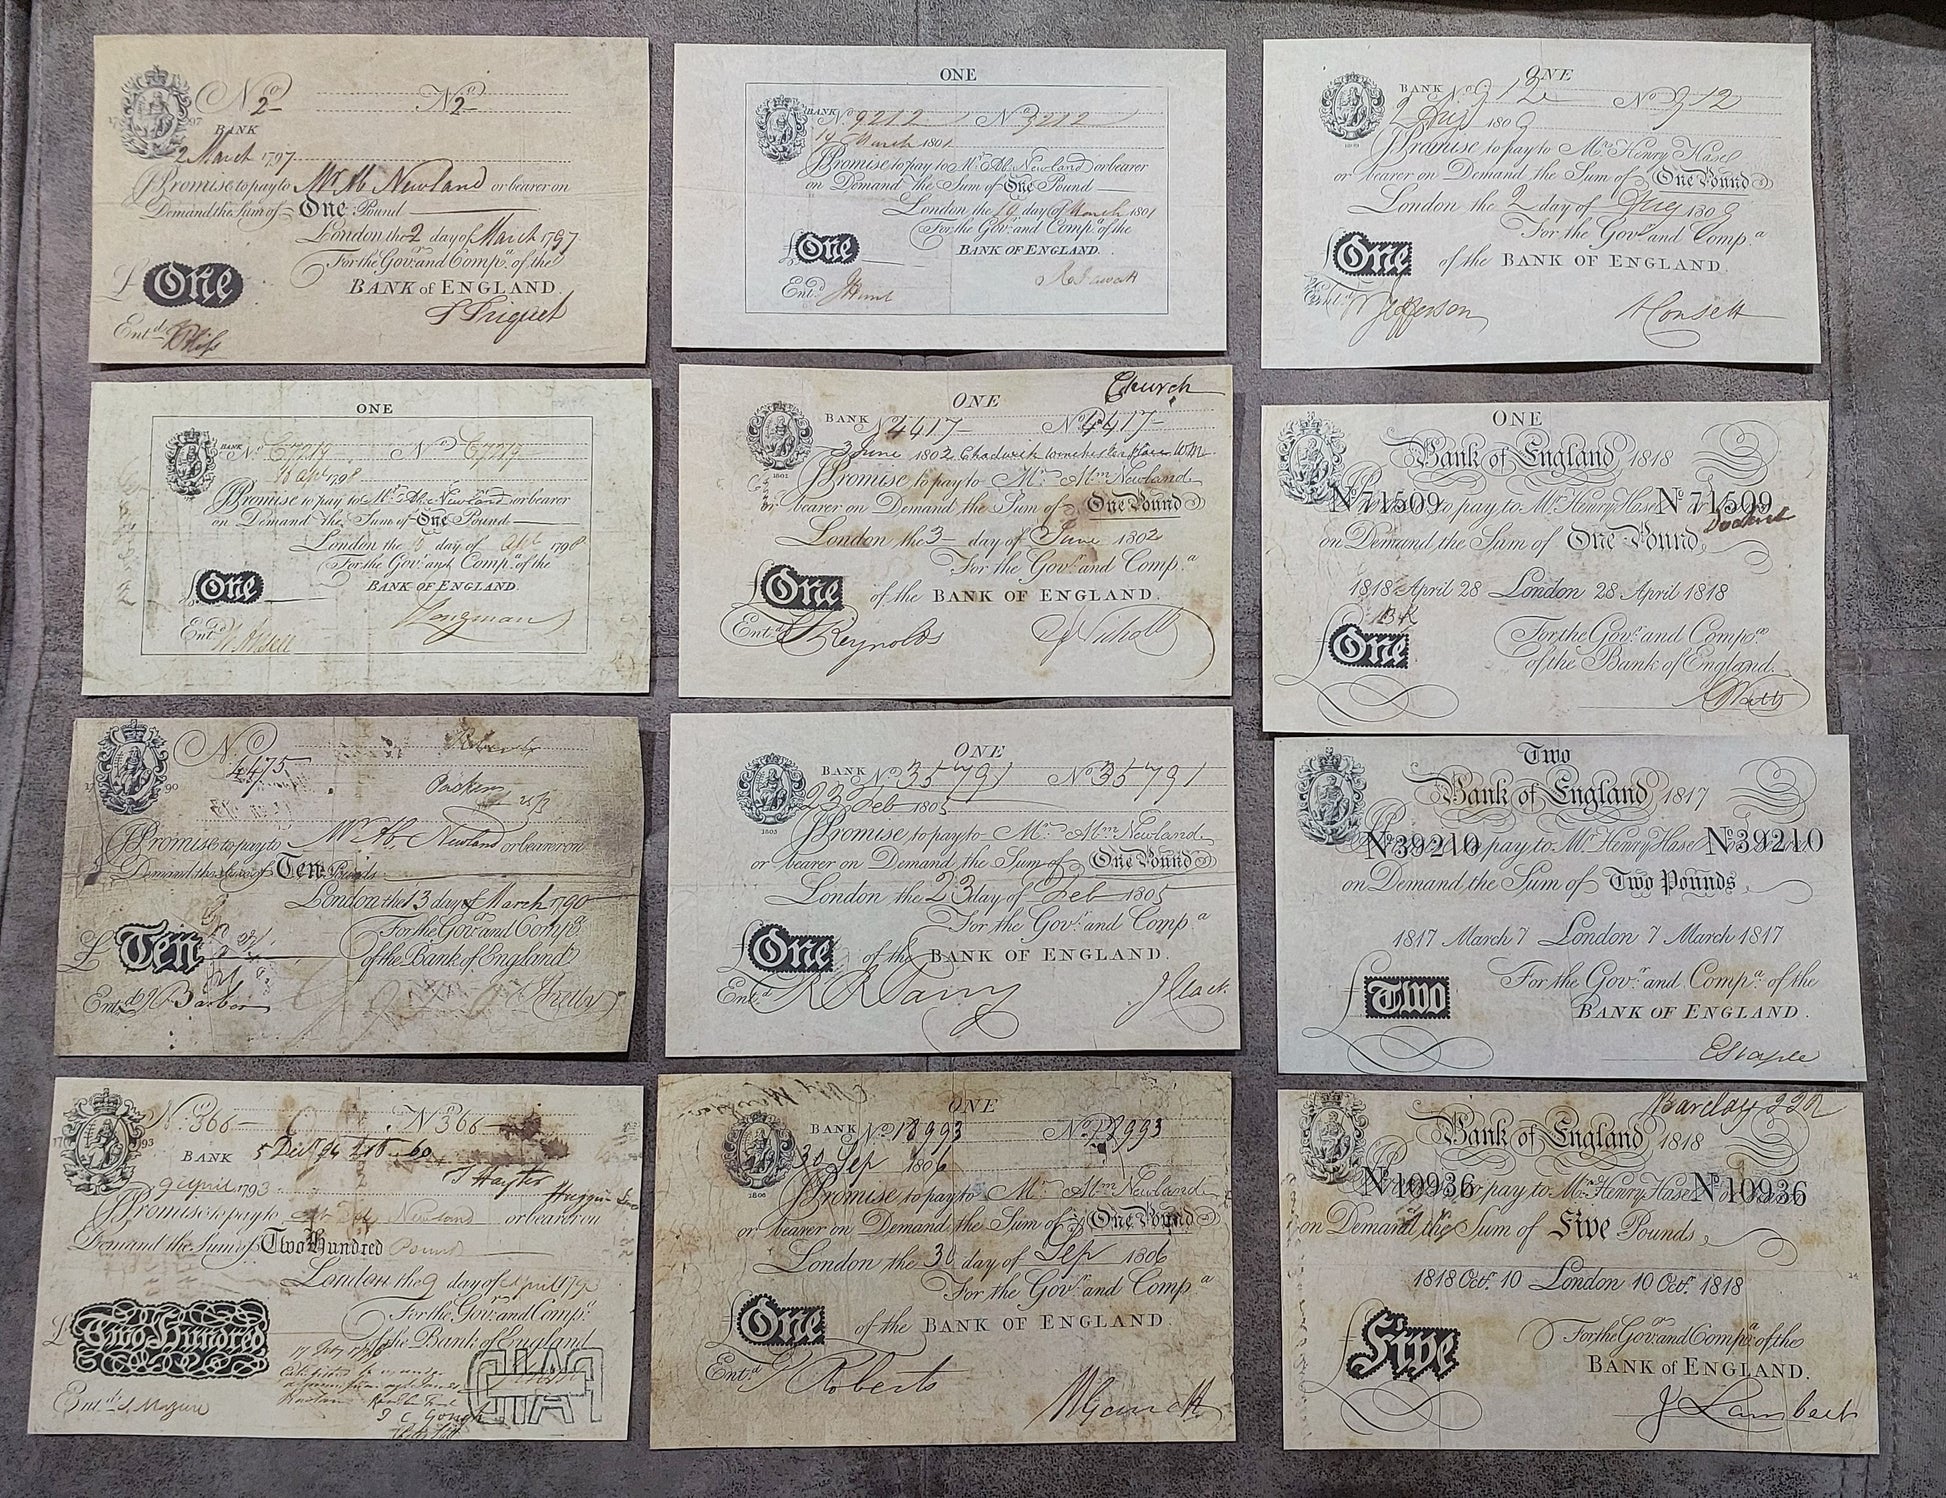 No 2 No 2
17 97
BANK
2 March 1797
I Promise to pay to Mr Ab Newland or bearer on
Demand the Sum of One Pound
London the 2 day of March 1797
For the Govr. and Compa. of the
£ One BANK of ENGLAND.
Entd.
ONE
BANK No C7219 No C7219
18 Apl 1798
I Promise to pay to Mr. Ab. Newland or bearer
on Demand the Sum of One Pound
London the 18 day of Apl 1798
For the Govr. and Compa. of the
£ One BANK OF ENGLAND.
Entd. Longman
No 4475 Roberts
17 90
I Promise to pay to Mr Ab. Newland or bearer on
Demand the Sum of Ten Pounds
London the 13 day of March 1790
For the Govr. and Compa.
£ Ten of the Bank of England
Entd. Barber
No 366 No 366
17 93
BANK
9 April 1793 T Hayter
I Promise to pay to Newland or bearer on
Demand the Sum of Two Hundred Pounds
London the 9 day of April 179
For the Govr. and Compa.
£ Two Hundred of the Bank of England
J C Gough
Entd.
ONE
BANK No 9212 No 9212
19 March 1801
I Promise to pay to Mr. Ab. Newland or bearer
on Demand the Sum of One Pound
London the 19 day of March 1801
For the Govr. and Compa. of the
£ One BANK OF ENGLAND.
Entd. J Hunt
Church
ONE
BANK No 4417 No 4417
1802
3 June 1802 Chadwick Winchester
I Promise to pay to Mr. Abm. Newland
or bearer on Demand the Sum of One Pound
London the 3 day of June 1802
For the Govr. and Compa.
£ One of the BANK OF ENGLAND.
Entd. Reynolds
ONE
BANK No 35791 No 35791
1805
23 Feb 1805
I Promise to pay to Mr. Abm. Newland
or bearer on Demand the Sum of One Pound
London the 23 day of Feb 1805
For the Govr. and Compa.
£ One of the BANK OF ENGLAND.
Entd.
ONE
BANK No 18993 No 18993
1806
30 Sep 1806
I Promise to pay to Mr. Abm. Newland
or bearer on Demand the Sum of One Pound
London the 30 day of Sep 1806
For the Govr. and Compa.
£ One of the BANK OF ENGLAND.
Entd. Roberts
ONE
BANK No 912 No 912
2 Aug 1809
I Promise to pay to Mr. Henry Hase
or bearer on Demand the Sum of One Pound
London the 2 day of Aug 1809
For the Govr. and Compa.
£ One of the BANK OF ENGLAND.
Entd. Jefferson A Consett
ONE
Bank of England 1818
No 71509 No 71509
pay to Mr. Henry Hase
on Demand the Sum of One Pound
1818 April 28 London 28 April 1818
£ One For the Govr. and Compa.
of the Bank of England.
Two
Bank of England 1817
No 39210 No 39210
pay to Mr. Henry Hase
on Demand the Sum of Two Pounds
1817 March 7 London 7 March 1817
£ Two For the Govr. and Compa. of the
BANK OF ENGLAND.
E Staple
Barclay
Bank of England 1818
No 10936 No 10936
pay to Mr. Henry Hase
on Demand the Sum of Five Pounds
1818 Octr. 10 London 10 Octr. 1818
£ Five For the Govr. and Compa. of the
BANK of ENGLAND.
J Lambert